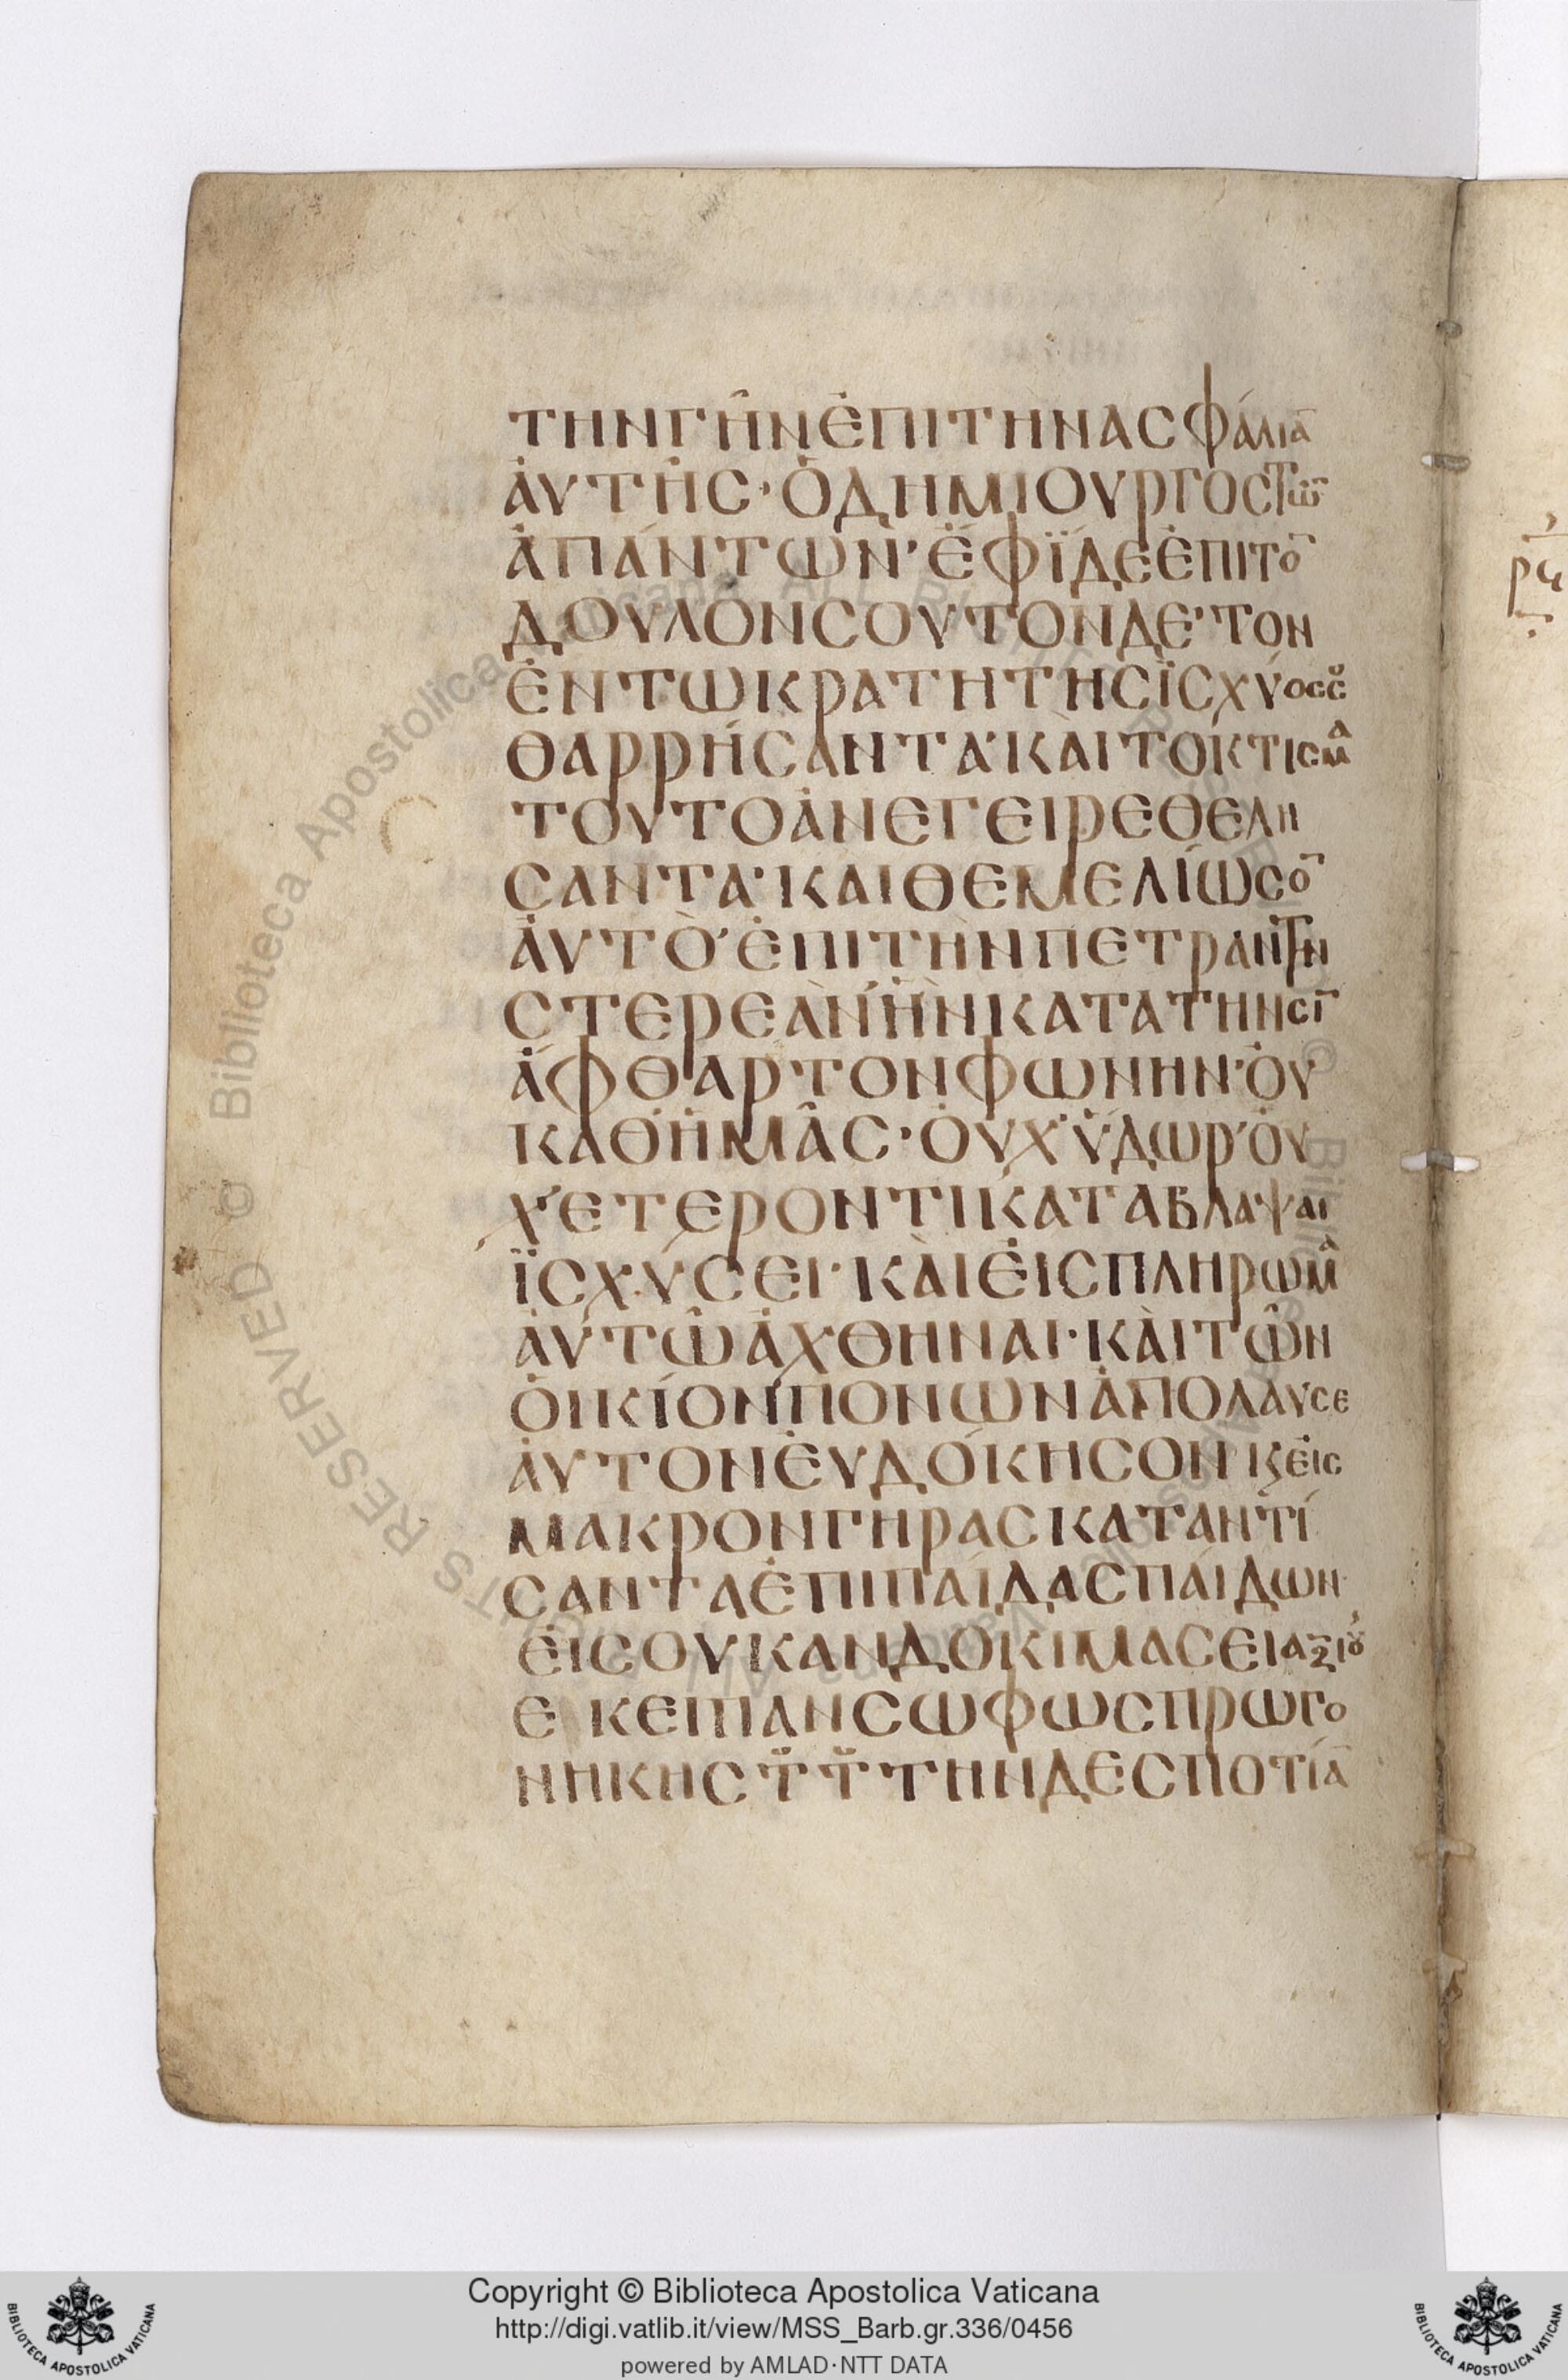 ΤΗΝΓΗ͂ΝἘΠΙΤΗΝΑΣΦΆΛΙΑ̅
ἈΥΤΗ͂Σ·ὉΔΗΜΙΟΥΡΓΟΣΤΩ̅
ἉΠΆΝΤΩΝ·ἜΦΪΔΕἘΠΙΤΟ̅
ΔΟΥΛΟΝΣΟΥΤΟΝΔΕ·ΤΟΝ
ἘΝΤΩΚΡΑΤΗΤΗΣΪΣΧΎΟΣΣȣ
ΘΑΡΡΉΣΑΝΤΑ·ΚΑΙΤΟΚΤΙΣΜᾹ
ΤΟΥΤΟἈΝΕΓΕΙΡΕΘΕΛΗ
ΣΑΝΤΑ·ΚΑΙΘΕΜΕΛΙΩΣΟ̅
ἈΥΤῸ·ἘΠΙΤῊΝΠΕΤΡΑΝΤΗΝ
ΣΤΕΡΕᾺΝ·ἫΝΚΑΤΑΤΗΝΣΓ̅
ἌΦΘΑΡΤΟΝΦΩΝΗΝ·ὈΥ
ΚΑΘΗΜΑ͂Σ·ὈΥΧΎΔΩΡ·ὈΥ
ΧΕΤΕΡΟΝΤΙΚΑΤΑΒΛΑΨΑΙ
ΪΣΧΎΣΕΙ·ΚᾺΙἘΙΣΠΛΗΡΩΜΑ
ἈΥΤΩ͂ἈΧΘΗΝΑΙ·ΚᾺΙΤΩ͂Ν
ὈΙΚΊΟΝΠΟΝΩΝἈΠΟΛΑΥΣΕ
ἈΥΤΟΝἘΥΔΌΚΗΣΟΝΚϚἘΙΣ
ΜΑΚΡΟΝΓΗΡΑΣΚΑΤΑΝΤΊ
ΣΑΝΤΑἘΠΙΠΑΊΔΑΣΠΆΙΔΩΝ·
ἘΙΣΟΥΚΑΝΔΟΚΙΜΑΣΕΙΑΞΙȣ
ΕΚΕΠΑΝΣΩΦΩΣΠΡΩΓΟ
ΝΗΚΗΣΤȣΤȣΤΗΝΔΕΣΠΟΤΊΑ̅
© Biblioteca Apostolica Vaticana ALL RIGHTS RESERVED
Copyright © Biblioteca Apostolica Vaticana
http://digi.vatlib.it/view/MSS_Barb.gr.336/0456
powered by AMLAD·NTT DATA
BIBLIOTECA APOSTOLICA VATICANA
BIBLIOTECA APOSTOLICA VATICANA